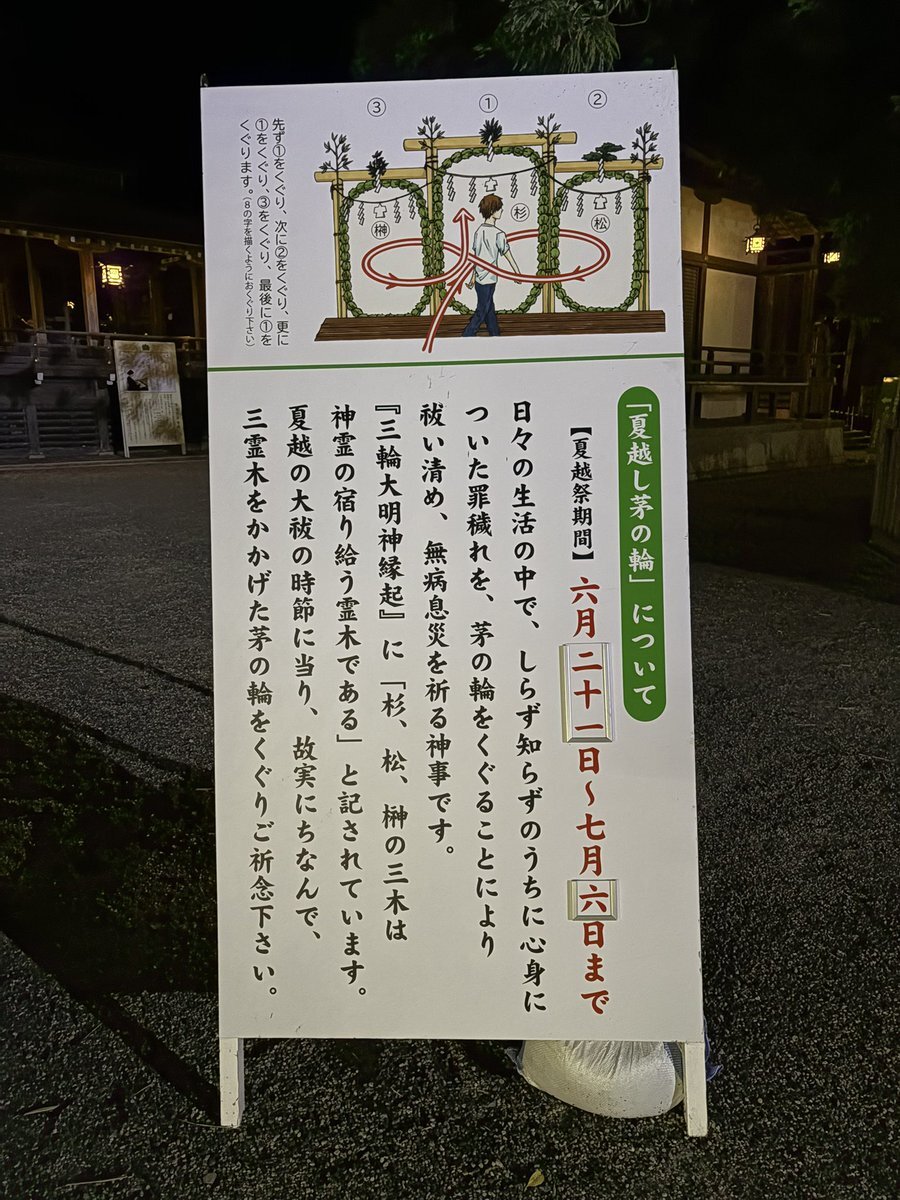 ③
①
②
榊
杉
松
先ず①をくぐり、次に②をくぐり、更に
①をくぐり、③をくぐり、最後に①を
くぐります。(8の字を描くようにおくぐり下さい)
「夏越し茅の輪」について
【夏越祭期間】六月二十一日～七月六日まで
日々の生活の中で、しらず知らずのうちに心身に
ついた罪穢れを、茅の輪をくぐることにより
祓い清め、無病息災を祈る神事です。
『三輪大明神縁起』に「杉、松、榊の三木は
神霊の宿り給う霊木である」と記されています。
夏越の大祓の時節に当り、故実にちなんで、
三霊木をかかげた茅の輪をくぐりご祈念下さい。